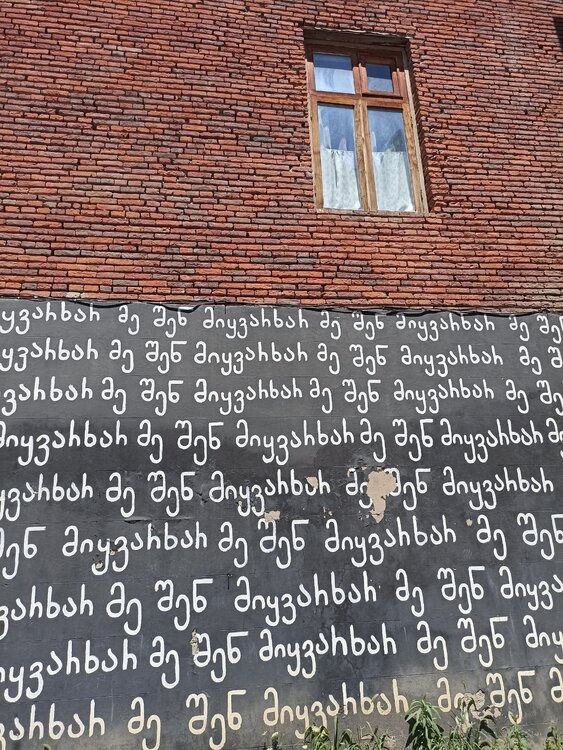 ყვარხარ მე შენ მიყვარხარ მე შენ მიყვარხარ მე შენ
ყვარხარ მე შენ მიყვარხარ მე შენ მიყვარხარ მე შ
ყვარხარ მე შენ მიყვარხარ მე შენ მიყვარხარ მე შე
მიყვარხარ მე შენ მიყვარხარ მე შენ მიყვარხარ მე
ყვარხარ მე შენ მიყვარხარ მე შენ მიყვარხარ
შენ მიყვარხარ მე შენ მიყვარხარ მე შენ
ვარხარ მე შენ მიყვარხარ მე შენ მიყვა
იყვარხარ მე შენ მიყვარხარ მე შენ მიყ
ვარხარ მე შენ მიყვარხარ მე შენ მ